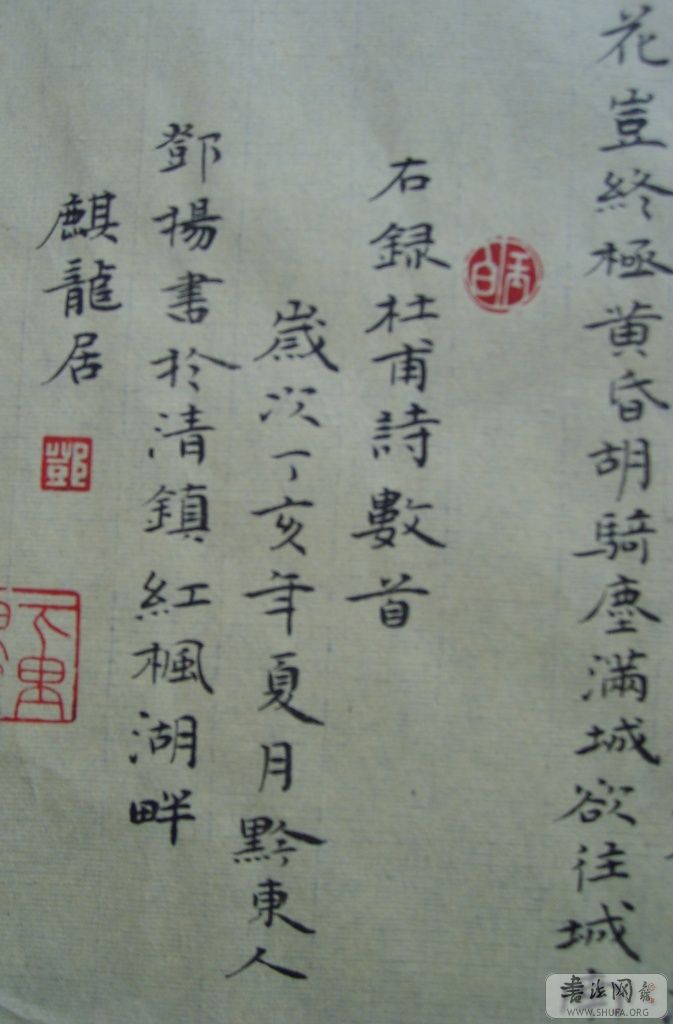 花豈終極黄昏胡騎塵滿城欲往城
右録杜甫詩數首
歲次丁亥年夏月黔東人
鄧揚書於清鎮紅楓湖畔
麒龍居
鄧
書法网
WWW.SHUFA.ORG